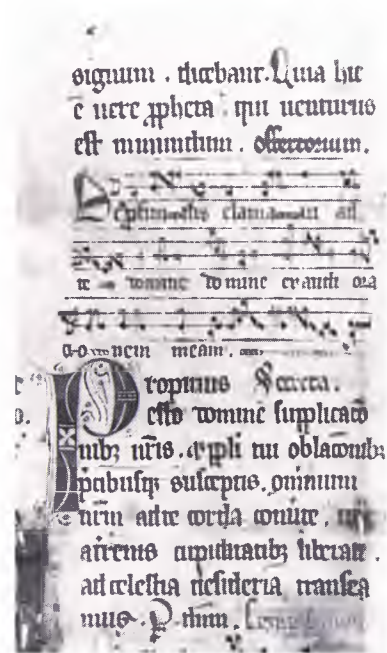 signum . dicebant. Quia hic
e uere ppheta qui uenturus
est in mundum . offertorium.
De profundis clamaui ad
te domine domine exaudi ora
tionem meam.
Propitius Secreta.
esto domine supplicatio
nibz nris. et ppli tui oblationibz
pcibusqz susceptis. omnium
nrm ad te corda conuerte .
a terrenis cupiditatibz liberati
ad celestia desideria transea
mus. P dnm.